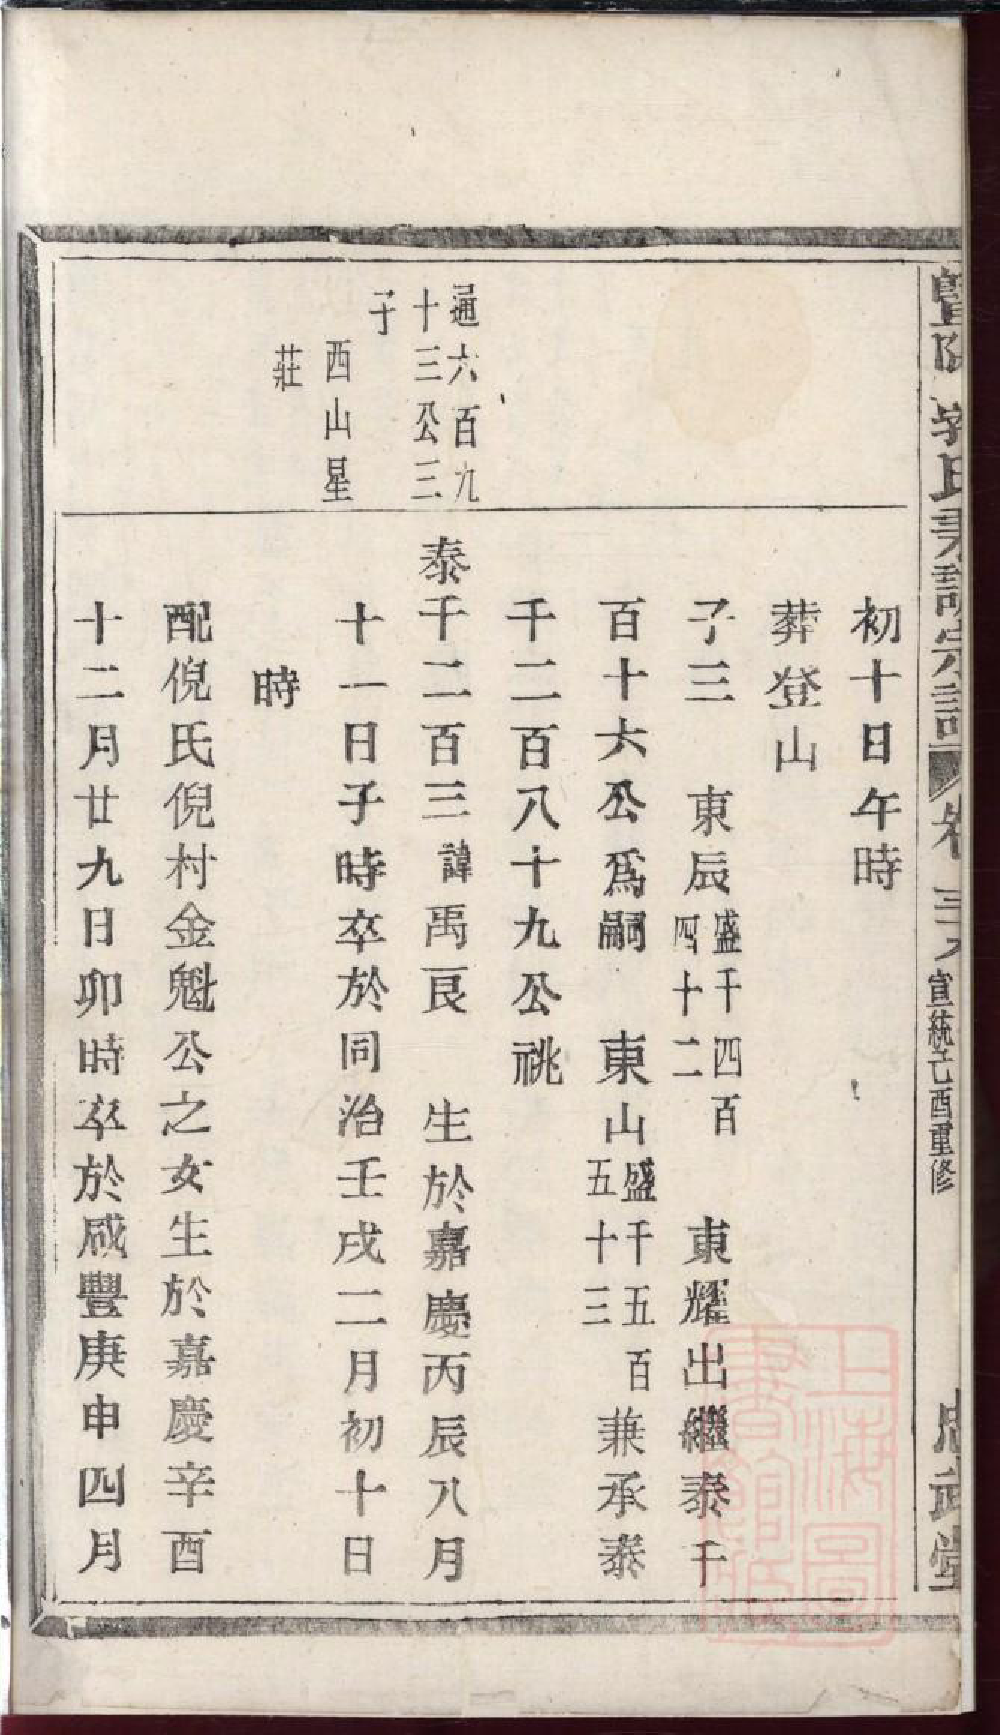 初十日午時
葬登山
子三 東辰盛千四百四十二 東耀出繼泰千
百十六公爲嗣 東山盛千五百五十三 兼承泰
千二百八十九公祧
通六百九
十三公三
子
西山星
莊
泰千二百三諱禹艮 生於嘉慶丙辰八月
十一日子時卒於同治壬戌二月初十日
時
配倪氏倪村金魁公之女生於嘉慶辛酉
十二月廿九日卯時卒於咸豐庚申四月
宣統乙酉重修
上海圖書館藏